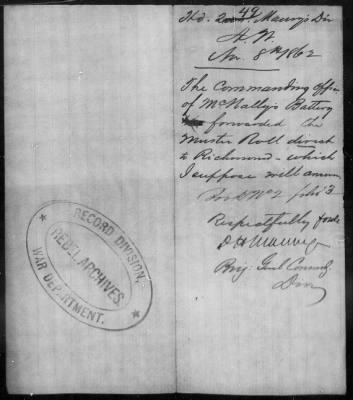 49
Hd. Maury's Div
A. W.
Nov. 8th 1862
The Commanding Offr
of McNally's Battery
forwarded the
Muster Roll direct
to Richmond - which
I suppose will
Respectfully
D H Maury
Brig. Genl Comndg
Div
RECORD DIVISION,
REBEL ARCHIVES,
WAR DEPARTMENT.